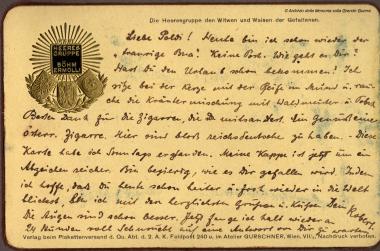 © Archivio della Memoria sulla Grande Guerra
Die Heeresgruppe den Witwen und Waisen der Gefallenen.
HEERES
GRUPPE
BÖHM
ERMOLLI
Liebe Poldi! Heute bin ich schon wieder der
"traurige Bua". Keine Post. Wie geht es Dir?
Hast Du den Urlaub schon bekommen? Ich
sitze bei der Kerze mit der Pfeife im Mund u. rauche
die Kräutermischung mit Waldmeister u.
Besten Dank für die Zigarren, die Du mitsandtest. Ein Genuß eine
österr. Zigarre. Hier sind bloß reichsdeutsche zu haben. - Diese
Karte habe ich Sonntags erstanden. Meine Kappe ist jetzt um ein
Abzeichen reicher. Bin begierig, wie es Dir gefallen wird. Indem
ich hoffe, daß Du heute schon heiter u. froh wieder in die Welt
blickest, bin ich mit den herzlichsten Grüßen u. Küssen Dein
Die Augen sind schon besser. Jetzt fange ich halt wieder an
24 Stunden voll Sehnsucht auf eine Antwort von Dir zu warten.
Verlag beim Plakettenversand d. Qu. Abt. d. 2. A. K. Feldpost 240 u. im Atelier GURSCHNER, Wien, VIII. Nachdruck verboten.